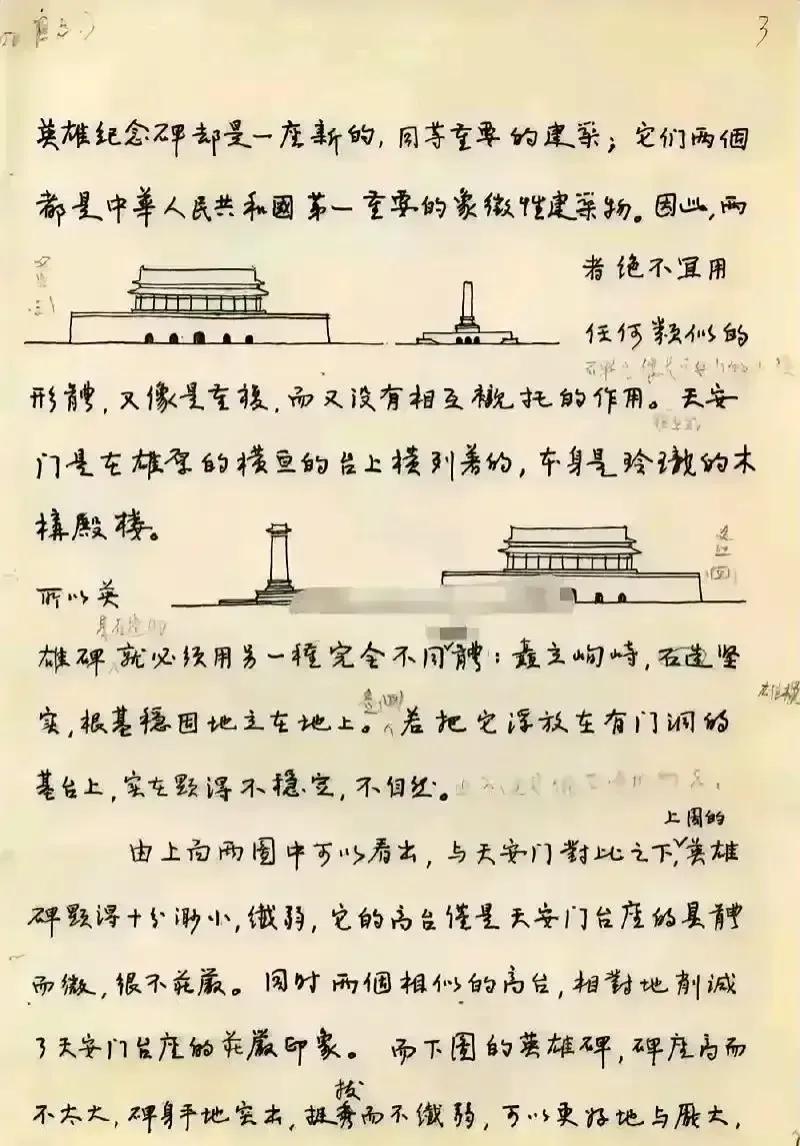 3
英雄纪念碑却是一座新的,同等重要的建築;它们两個
都是中華人民共和國第一重要的象徵性建築物。因此,两
者绝不宜用
任何類似的
形體,又像是重複,而又没有相互襯托的作用。天安
门是在雄厚的横亘的台上横列着的,本身是玲瓏的木
構殿楼。
所以英
雄碑就必须用另一種完全不同體:矗立峋峙,石造坚
实,根基穩固地立在地上。若把它浮放在有门洞的
基台上,实在顯得不穩定,不自然。
上图的
由上面两圖中可以看出,与天安门對比之下,英雄
碑顯得十分渺小,纖弱,它的高台僅是天安门台座的具體
而微,很不莊嚴。同时两個相似的高台,相對地削減
了天安门台座的莊嚴印象。而下圖的英雄碑,碑座高而
拔
不太大,碑身平地突出,挺秀而不纖弱,可以更好地与龐大,